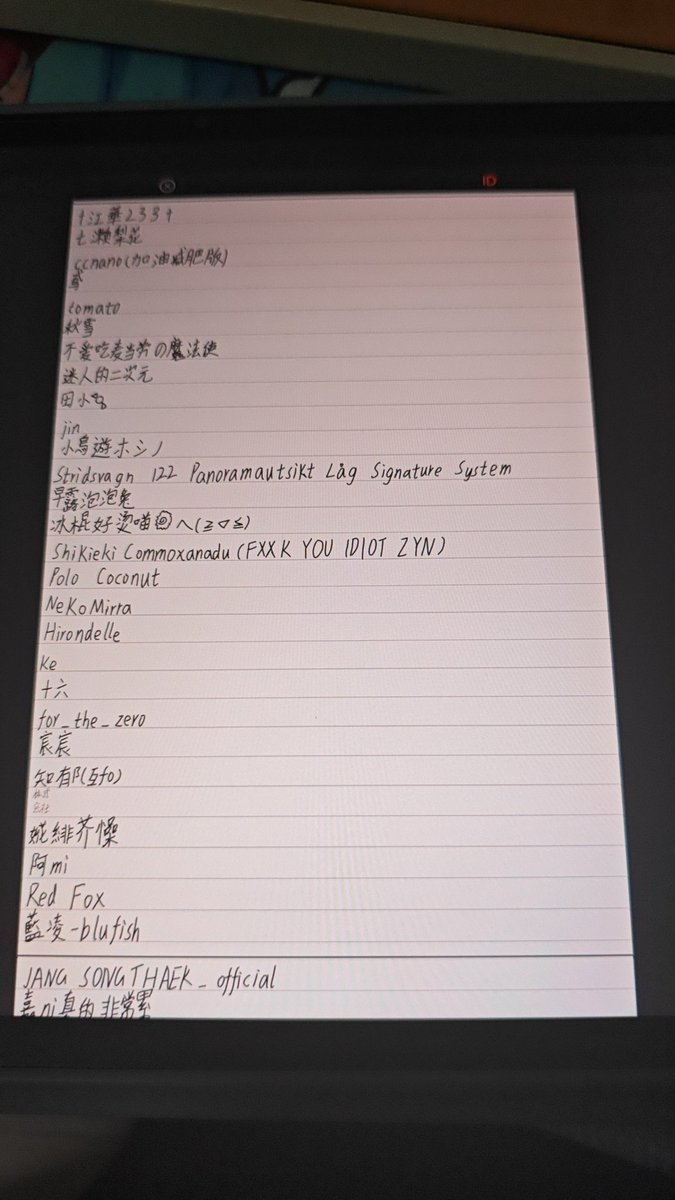 ID
十江華233十
七瀬梨花
ccnano(加油减肥版)
鸢
tomato
秋雪
不爱吃麦当劳の魔法使
迷人的二次元
田小
jin
小鳥遊ホシノ
Stridsvagn 122 Panoramautsikt Låg Signature System
早露泡泡兔
冰棍好烫喵 ヘ(≧▽≦)
Shikieki Commoxanadu (FXXK YOU IDIOT ZYN)
Polo Coconut
NeKoMirra
Hirondelle
Ke
十六
for_the_zero
宸宸
知郁(互fo)
株式
会社
緋芥懆
阿mi
Red Fox
藍凌-blufish
JANG SONGTHAEK_official
嘉ni真的非常累